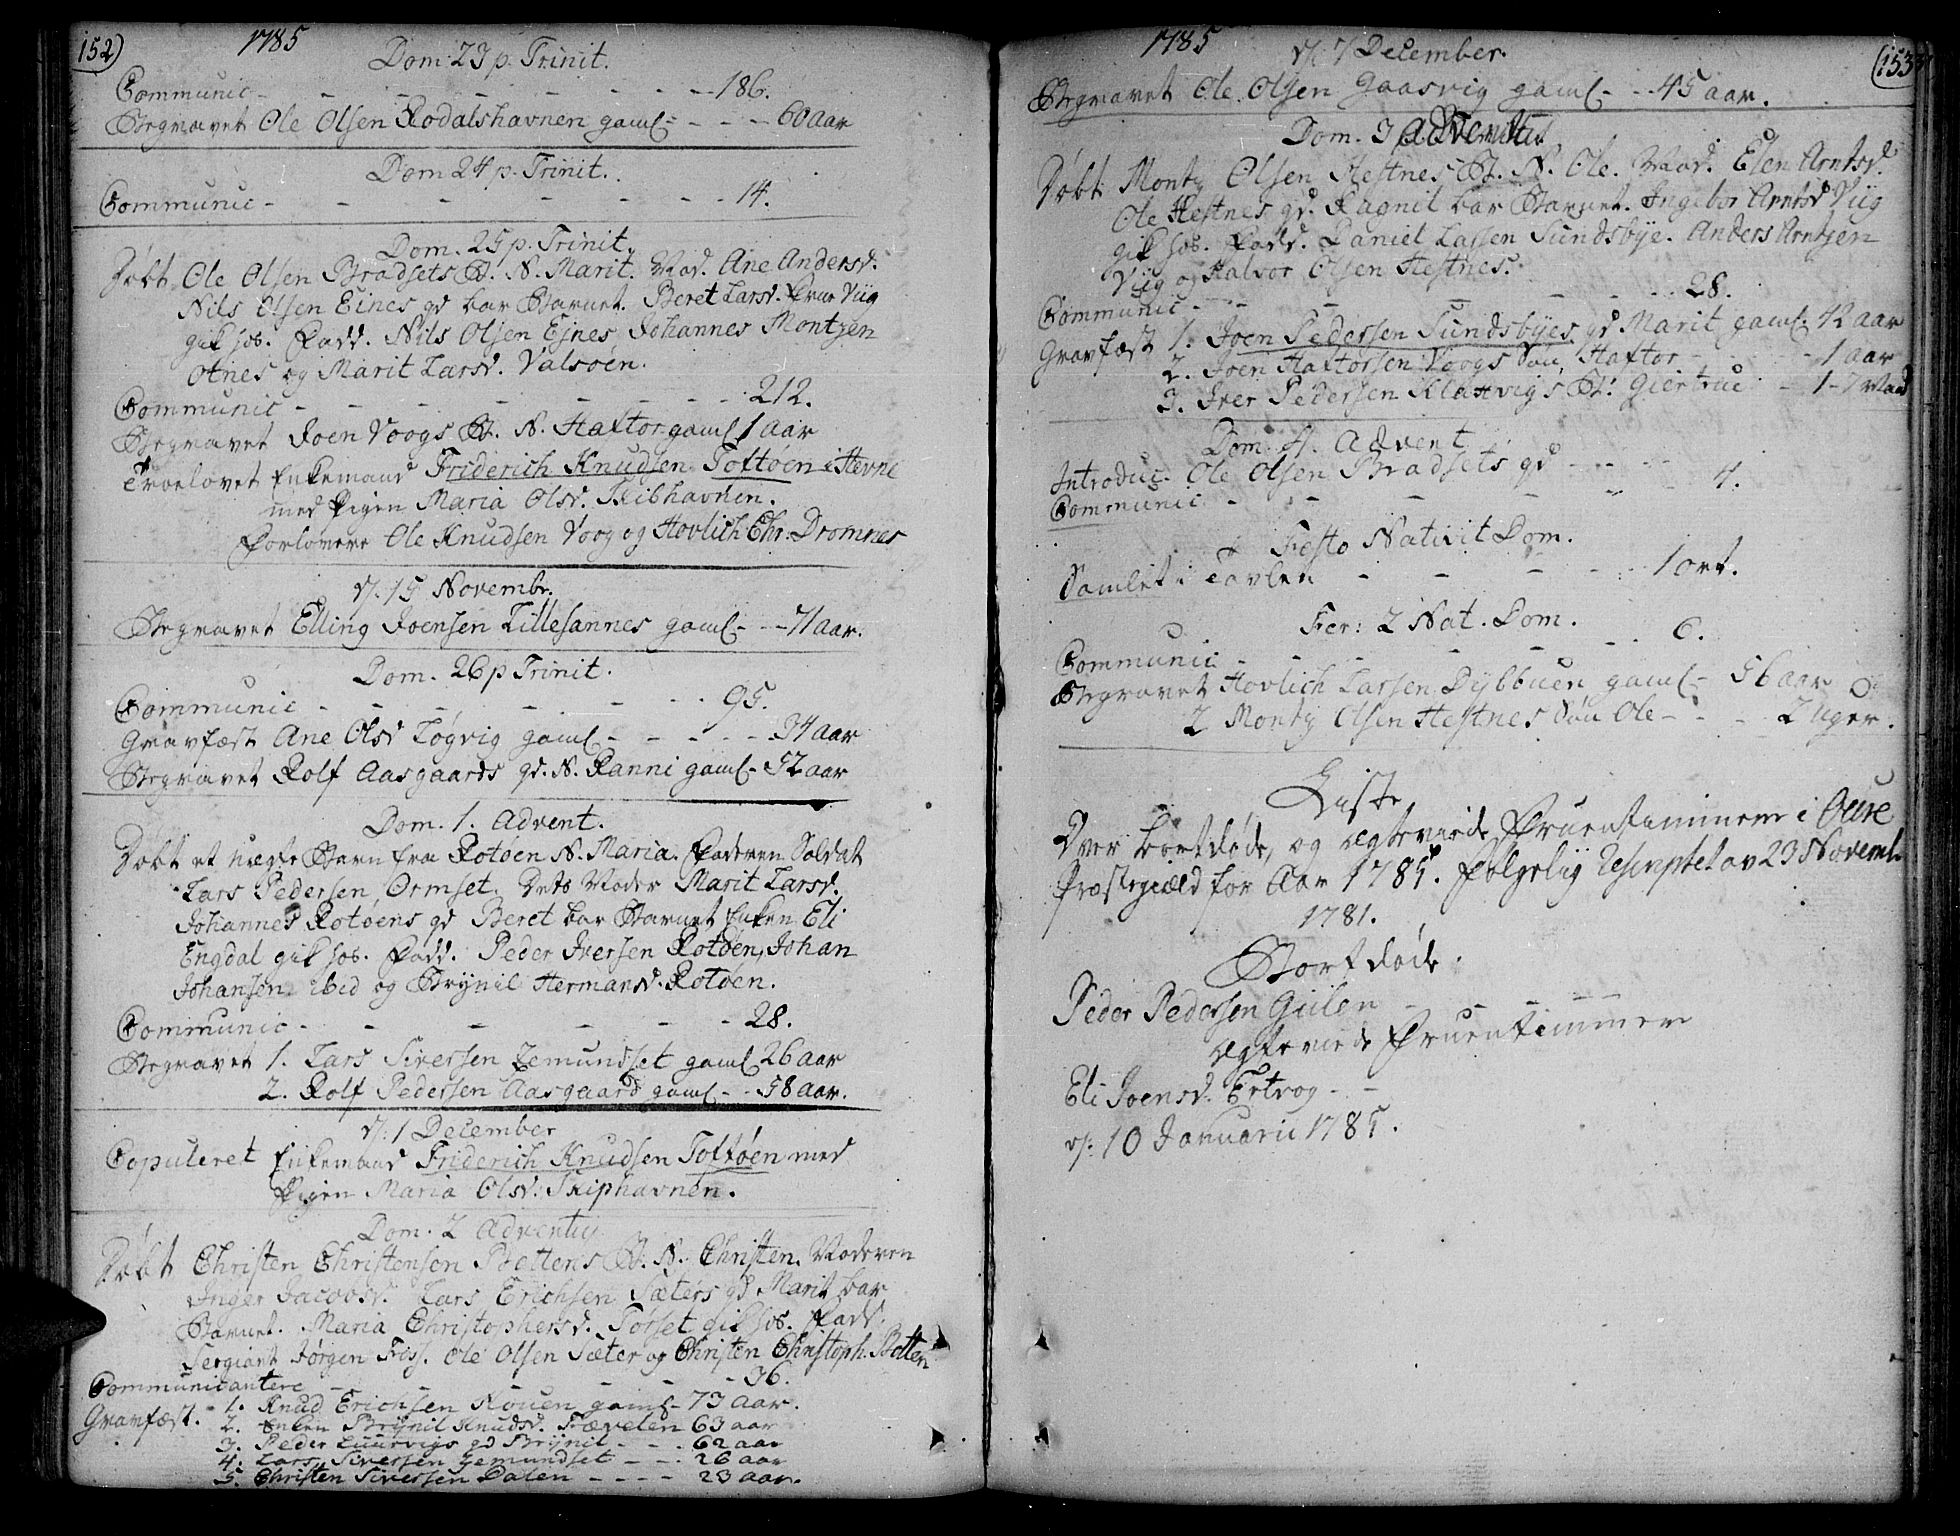 152)
1785
Dom: 23 p. Trinit.
Communic - - - - - - - 186.
Begravet Ole Olsen Rodalshavnen gaml - - - 60 aar
Dom 24 p. Trinit.
Communic - - - - - - - 14.
Dom. 25 p. Trinit.
Døbt Ole Olsen Bradsets B. N. Marit. Mod. Ane Andersd.
Nils Olsen Eines qd bar Barnet. Beret Larsd. Viig
gik hos. Fadd. Nils Olsen Ejnes, Johannes Montzen
Otnes og Marit Larsd. Valsøen.
Communic - - - - - - 212.
Begravet Joen Voogs B. N. Haftor gaml 1 aar
Troelovet Enkemand Friderich Knudsen Toftøen i Hevne
med Pigen Maria Olsd. Skibhavnen.
Forlovere Ole Knudsen Voog og Hovlich Chr: Dromnes
d. 15 Novembr.
Begravet Elling Joensen Lillesannes gaml - - 71 aar.
Dom. 26 p Trinit.
Communic - - - - - - 95.
Gravfæst Ane Olsd Løgvig gaml - - - - 34 aar
Begravet Rolf Aasgaards qd. N. Ranni gaml - 52 aar
Dom. 1. Advent.
Døbt et uægte Barn fra Rotøen N. Maria. Faderen Soldat
Lars Pedersen Ormset. Dets Moder Marit Larsd.
Johannes Rotøens qd Beret bar Barnet Enken Eli
Engdal gik hos. Fadd. Peder Iversen Rotøen, Johan
Johansen ibid og Brynil Hermansd. Rotøen.
Communic - - - - - 28.
Begravet 1. Lars Siversen Zemundset gaml 26 aar
2. Rolf Pedersen Aasgaard gaml - - 58 aar.
d. 1 December
Copuleret Enkemand Friderich Knudsen Toftøen med
Pigen Maria Olsd. Skiphavnen.
Dom. 2 Adventus
Døbt Christen Christensen Bottens B. N. Christen. Moderen
Inger Jacobsd. Lars Erichsen Sæters qd Marit bar
Barnet. Maria Christophersd. Torset gik hos. Fadd.
Sergiant Jørgen Foss. Ole Olsen Sæter og Christen Christoph. Botten
Communicantere - - - - - 36.
Gravfæst. 1. Knud Erichsen Rouen gaml - 73 aar.
2. Enken Brynil Knudsd. Frævelen 63 aar
3. Peder Luurvigs qd Brynil - - - 62 aar
4. Lars Siversen Zemundset - - - 26 aar
5. Christen Siversen Dalen - - - - 23 aar.
1785
153
d. 7 December.
Begravet Ole Olsen Gaasvig gaml - - 45 aar.
Dom. 3 Adventus
Døbt Montz Olsen Hestnes B. N. Ole. Mod. Elen Arntsd.
Ole Hestnes qd. Ragnil bar Barnet. Ingebor Arntsd Viig
gik hos. Fadd. Daniel Lassen Sundsbye. Anders Arntzen
Viig og Halvor Olsen Hestnes.
Communic - - - - - - 28.
Gravfæst 1. Joen Pedersen Sundsbyes qd Marit gaml 42 aar
2. Joen Haftorsen Voogs Søn, Haftor - - - 1 aar
3. Iver Pedersen Klakvigs B: Giertrue - 1 - 7 Maan
Dom. 4. Advent
Introduc. Ole Olsen Bradsets qd - - -
Communic - - - - - 4.
Festo Nativit Dom.
Samlet i Tavlen - - - - 1 ort.
Fer: 2 Nat. Dom.
Communic - - - - - 6.
Begravet Hovlich Larsen Dybbuen gaml - 56 aar
2 Montz Olsen Hestnes Søn Ole - - - 2 Uger.
Liste
Over bortdøde, og ægteviede Fruentimmere i Oure
Præstegiæld for Aar 1785. Følgelig Rescriptet av 23 Novemb.
1781.
Bortdøde.
Peder Pedersen Giilen - - - -
ægteviede Fruentimmere
Eli Joensd. Ertvog - -
d. 10 Januarii 1785.